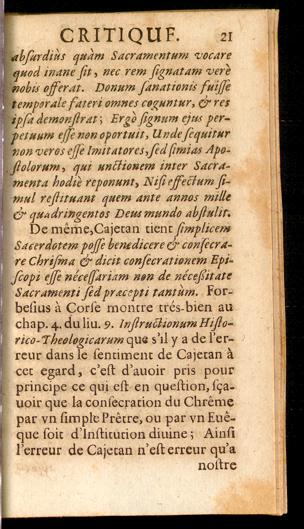 CRITIQUE. 21
absurdiùs quàm Sacramentum vocare
quod inane sit, nec rem signatam verè
nobis offerat. Donum sanationis fuisse
temporale fateri omnes coguntur, & res
ipsa demonstrat; Ergò signum ejus per-
petuum esse non oportuit, Unde sequitur
non veros esse Imitatores, sed simias Apo-
stolorum, qui unctionem inter Sacra-
menta hodiè reponunt, Nisi effectum si-
mul restituant quem ante annos mille
& quadringentos Deus mundo abstulit.
De même, Cajetan tient simplicem
Sacerdotem posse benedicere & consecra-
re Chrisma & dicit consecrationem Epi-
scopi esse necessariam non de necessitate
Sacramenti sed præcepti tantùm. For-
besius à Corse montre trés-bien au
chap. 4. du liu. 9. Instructionum Histo-
rico-Theologicarum que s'il y a de l'er-
reur dans le sentiment de Cajetan à
cet egard, c'est d'auoir pris pour
principe ce qui est en question, sça-
uoir que la consecration du Chrême
par vn simple Prêtre, ou par vn Euê-
que soit d'Institution diuine; Ainsi
l'erreur de Cajetan n'est erreur qu'a
nostre